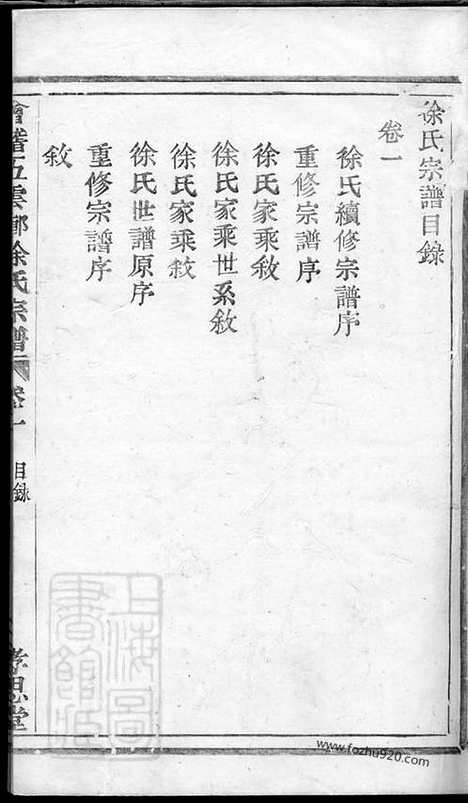 徐氏宗譜目錄
卷一
徐氏續修宗譜序
重修宗譜序
徐氏家乘敘
徐氏家乘世系敘
徐氏家乘敘
徐氏世譜原序
重修宗譜序
敘
會稽五雲鄉徐氏宗譜
卷一
目錄
孝思堂
上海圖書館藏
www.fozhu920.com